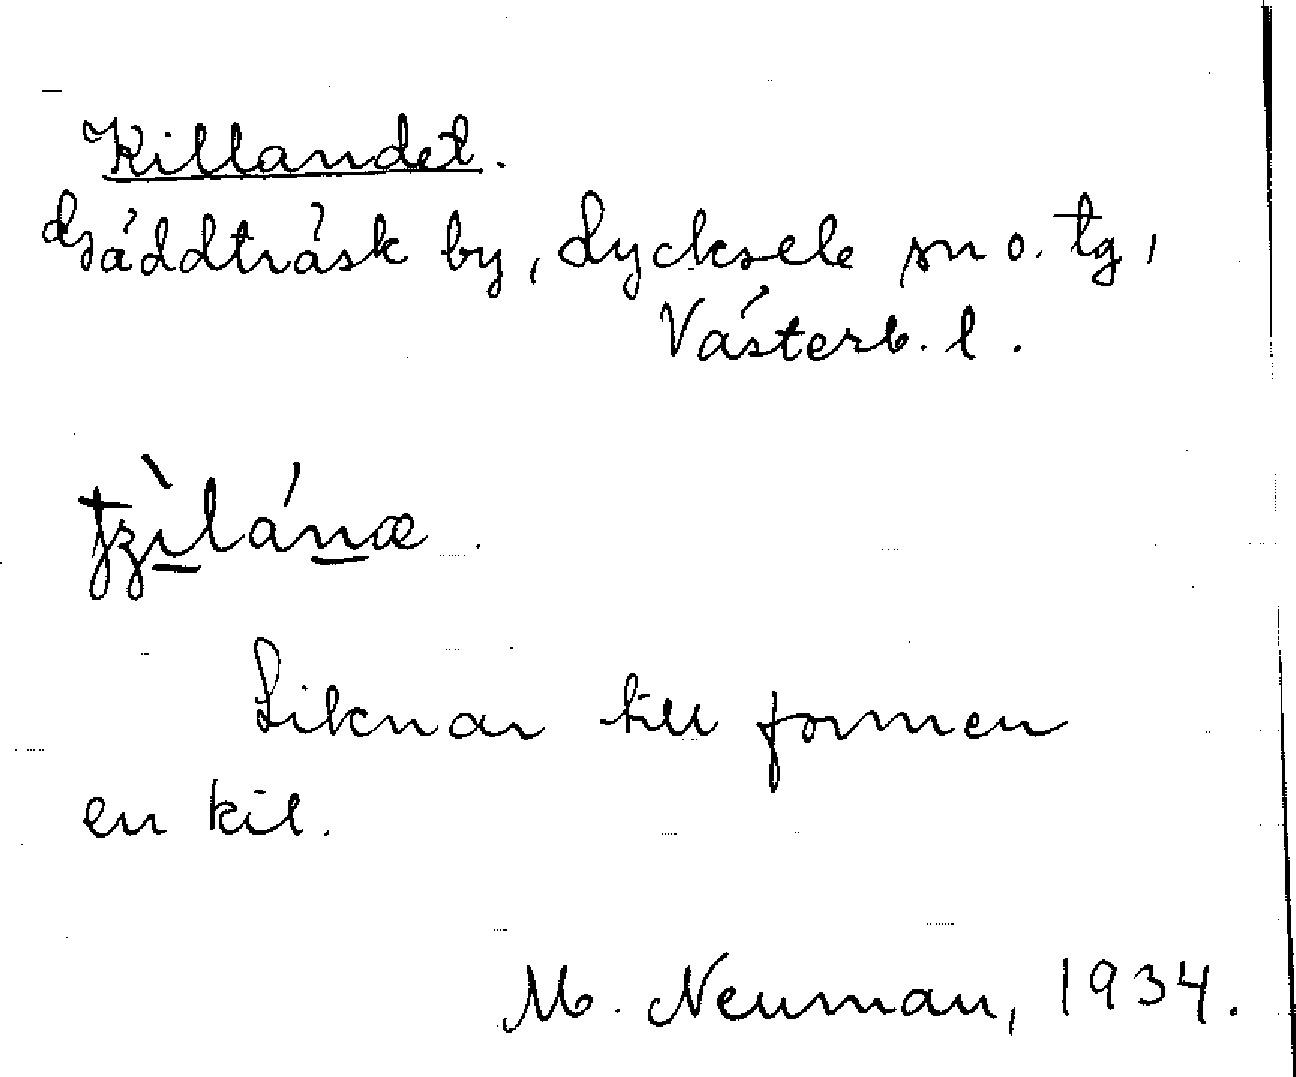 Killandet.
Gäddträsk by, Lycksele sn o. tg,
Västerb. l.
tzìlánæ.
Liknar till formen
en kil.
M. Neuman, 1934.